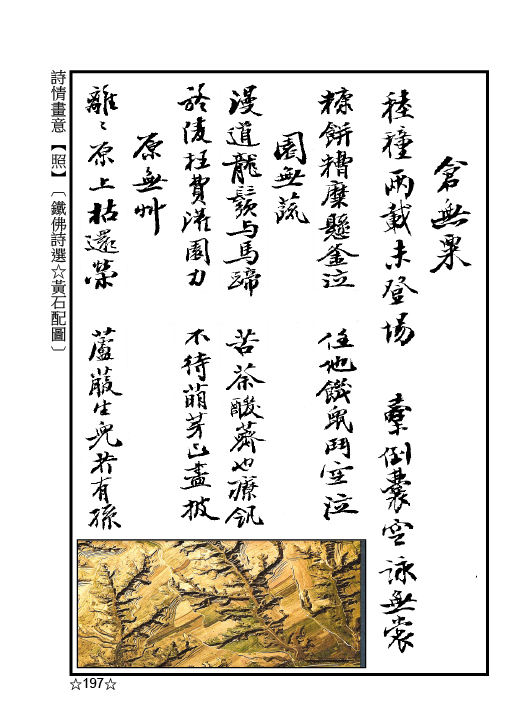 倉無粟
稑種兩載未登場　橐倒囊空詠無裳
糠餅糟糜懸釜泣　任他饑鼠鬥空泣
園無蔬
漫道龍鬚与馬蹄　苦荼酸薺也療飢
於陵枉費灌園力　不待萌芽已盡披
原無艸
離〻原上枯還榮　蘆菔生兒芥有孫
詩情畫意【照】〔鐵佛詩選☆黃石配圖〕
☆197☆